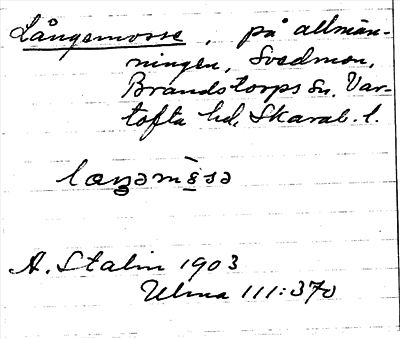 Långemosse, på allmän-
ningen, Svedmon,
Brandstorps sn. Var-
tofta hd. Skarab. l.
A. Stalin 1903
Ulma 111:370